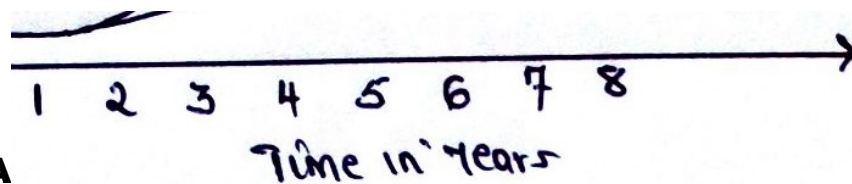 1 2 3 4 5 6 7 8
Time in Years